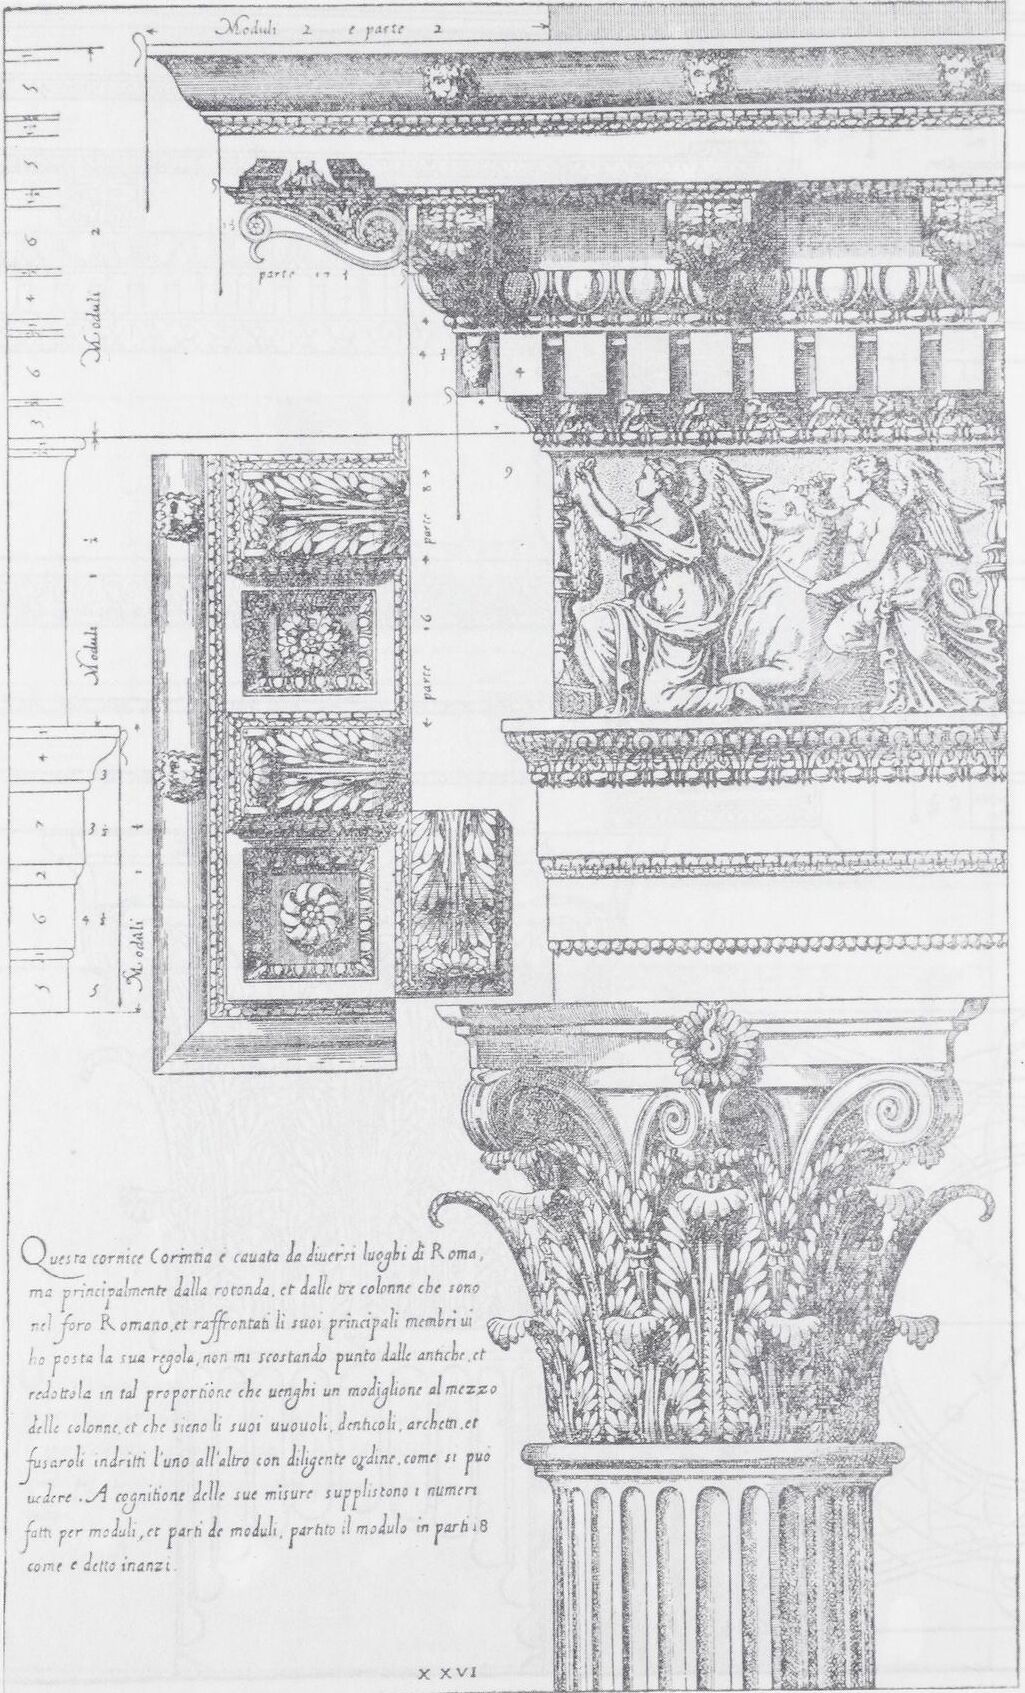 Moduli 2 e parte 2
1
5
5
6
4
6
3
Moduli 2
1 ½
parte 17 ½
4
4 ½
4
9
parte 8
parte 16
Moduli 1 ½
4
3
7
3 ½
2
6
4 ½
5
5
Moduli 1 ½
Questa cornice Corintia é cauata da diuersi luoghi di Roma,
ma principalmente dalla rotonda, et dalle tre colonne che sono
nel foro Romano, et raffrontati li suoi principali membri ui
ho posta la sua regola, non mi scostando punto dalle antiche, et
redottola in tal proportione che uenghi un modiglione al mezzo
delle colonne, et che sieno li suoi uuouoli, denticoli, archetti, et
fusaroli indritti l'uno all'altro con diligente ordine, come si può
uedere. A cognitione delle sue misure suppliscono i numeri
fatti per moduli, et parti de moduli, partito il modulo in parti 18
come e detto inanzi.
XXVI